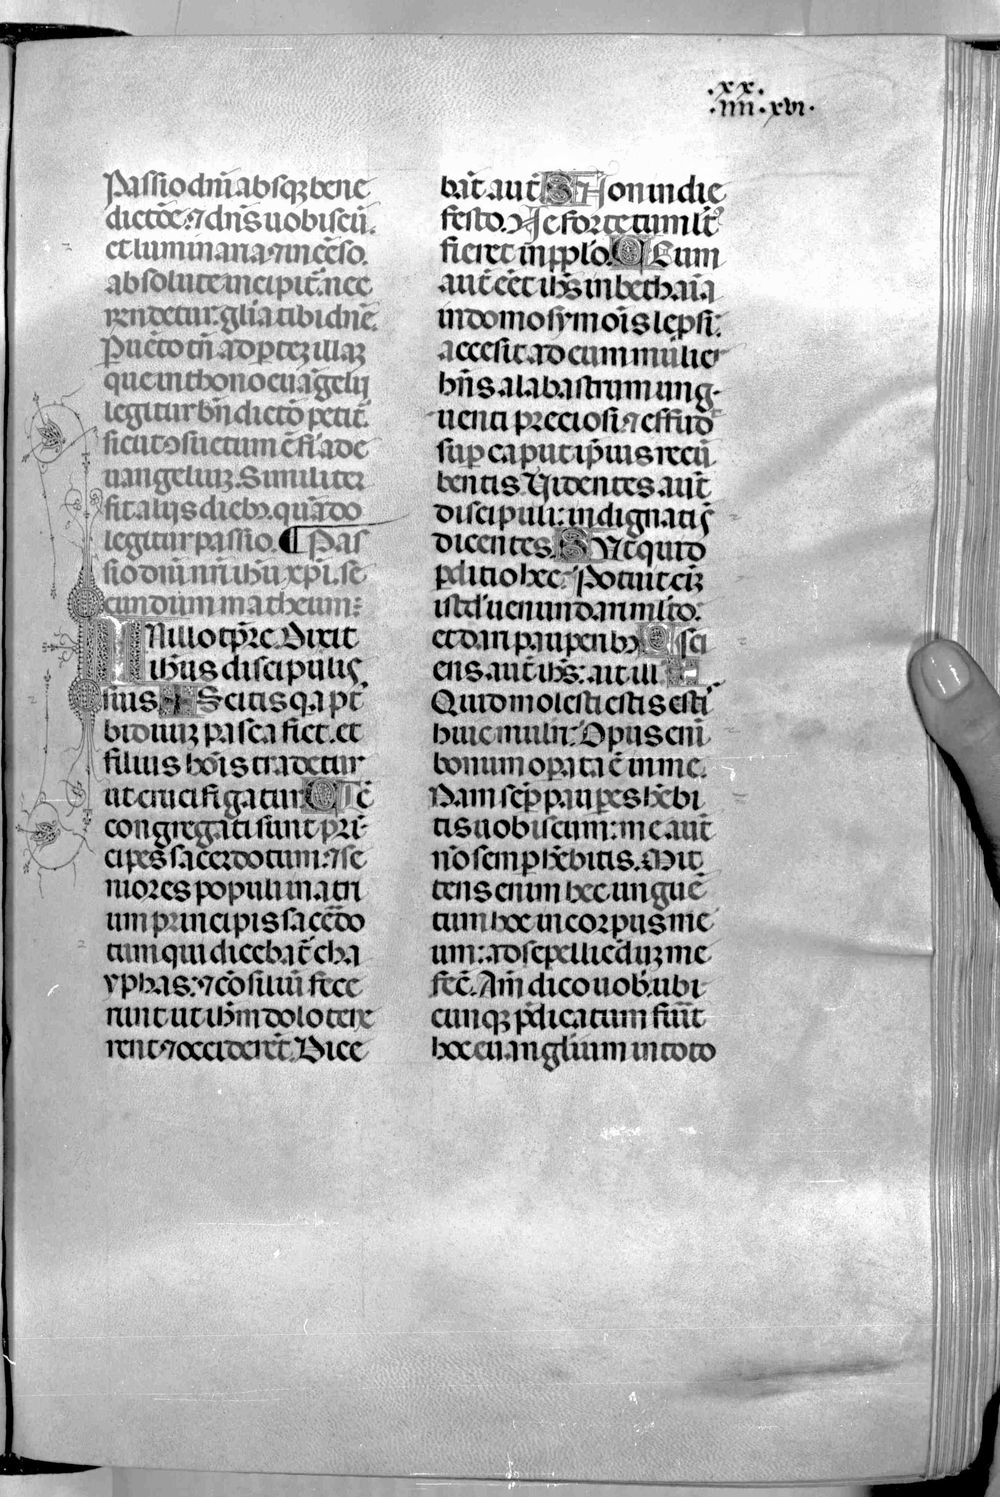 .xx.
.iiii.xvi.
Passio dñi absq₃ bene
dictõe.⁊ dñs uobiscũ.
et luminaria ⁊ incẽso.
absolute incipit̃. nec
rendetur. gl̃ia tibi dñe.
Puẽto tñ ad ꝑtez illaz
que in thono euãgelij
legitur bñdictõ petit̃.
sicut ɔsuetum ẽ fi'ad e
uangeliuz. Similiter
fit alijs dieb₃. quãdo
legitur passio. ¶ Pas
sio dñi nr̃i ihũ xp̃i. se
cundum matheum:
IN illo tp̃re. Dixit
ihũs discipulis
suis ✝ Scitis q̃a pt̃
biduuz pasca fiet. et
filius hoĩs tradetur
ut crucifigatur C Tẽ
congregati sunt pri̇̃
cipes sacerdotum: ⁊ se
niores populi in atri
um principis sacer̃do
tum qui dicebat̃ cha
yphas: ⁊ cõsiliũ fece
runt ut ihm dolo tene
rent ⁊ occiderẽt. Dice
bãt aut̃ S Non in die
festo. Ne forte tumult᷒
fieret in pplo. C Cum
aut̃ eẽt ihs in bethaĩa
in domo symoĩs lep̃si:
accesit ad eum mulier
hñs alabastrum ung-
uenti preciosi ⁊ effud̃
sup̃ caput ip̃ius recũ
bentis. Videntes aut̃
discipuli: indignati s̃
dicentes. S Vt quid
ꝑditio hec: Potuit ei₃
istd' uenundari mĩto:
et dari pauperib₃ C Sci
ens aut̃ ihs: ait ill' ✝
Quid molesti estis esti'
huic mulir̃: Opus eni̇̃
bonum oꝑata ẽ in me.
Nam semp̃ pauꝑes hẽbi
tis uobiscum: me aut̃
nõ semp hẽbitis. Mit
tens enim hec unguẽ
tum hoc in corpus me
um: ad sepelliẽduz me
fec̃. Am̃ dico uob̃. ubi
cunq₃ p̃dicatum fuit̃
hoc euangl̃ium in toto